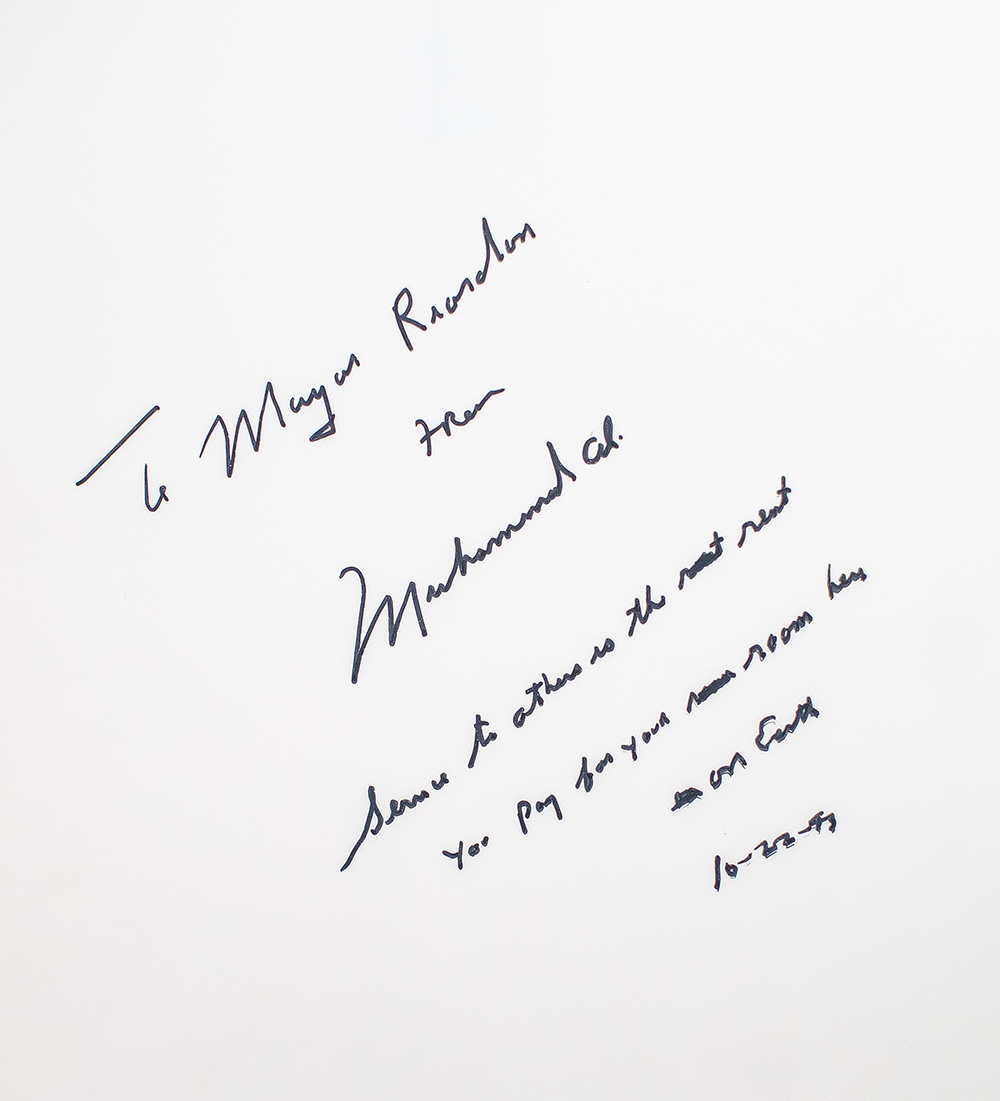 To Mayor Riordan
From
Muhammad Ali.
Service to others is the rent
You pay for your room here
on Earth
10-22-93